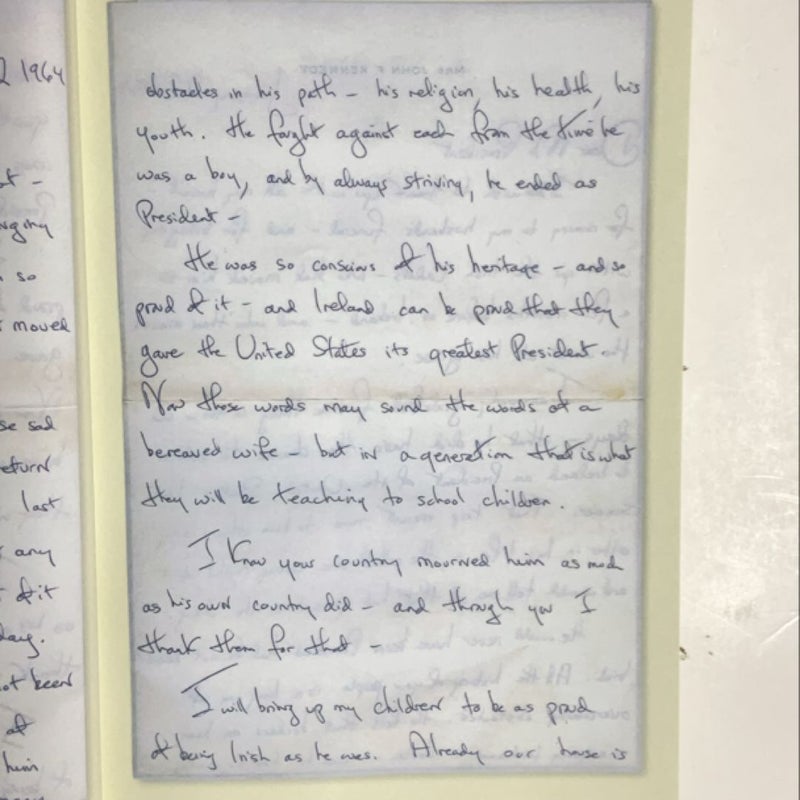 2 1964
MRS JOHN F KENNEDY
obstacles in his path – his religion, his health, his
youth. He fought against each from the time he
was a boy, and by always striving, he ended as
President –
He was so conscious of his heritage – and so
proud of it – and Ireland can be proud that they
gave the United States its greatest President.
Now those words may sound the words of a
bereaved wife – but in a generation that is what
they will be teaching to school children.
I know your country mourned him as much
as his own country did – and through you I
thank them for that –
I will bring up my children to be as proud
of being Irish as he was. Already our house is
so
moved
se sad
eturn
last
any
of it
day.
ot been
at
him